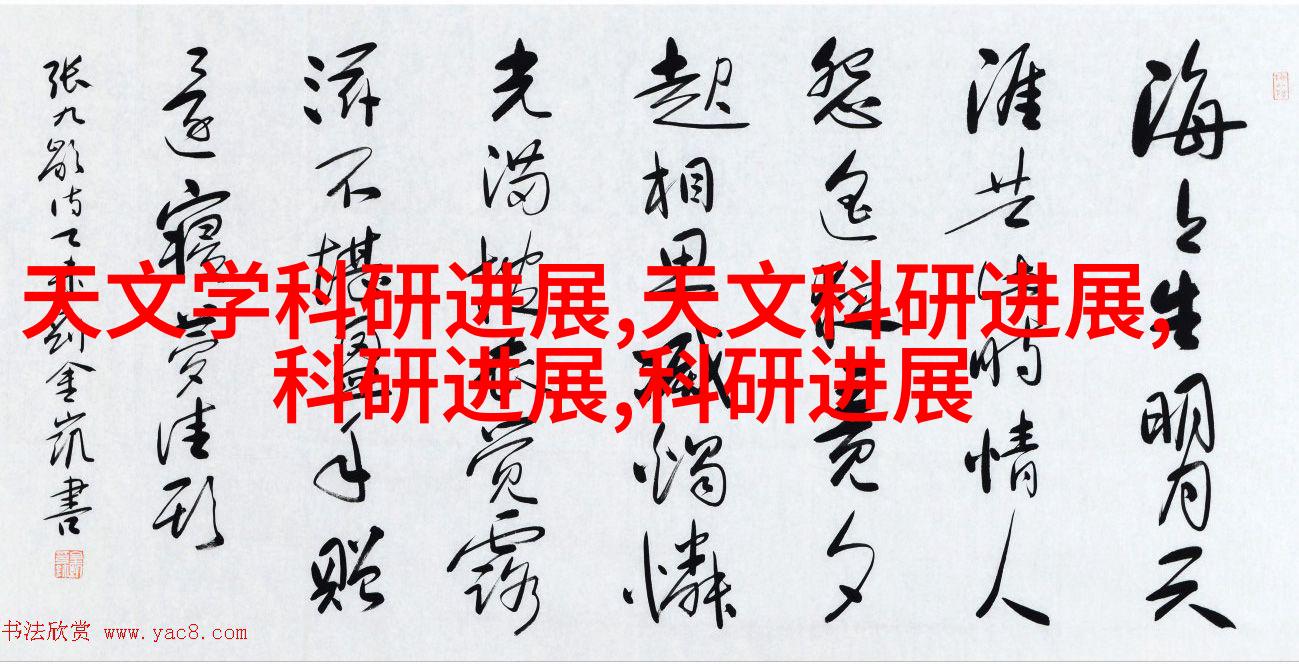 海上生明月天
涯共此時情人
怨遥夜竟夕
起相思滅燭憐
光满披衣觉露
滋不堪盈手贈
還寝夢佳期
张九龄诗乙未刘金凯書
天文学科研进展,天文科研进展,
科研进展,科研进展
书法欣赏 www.yac8.com